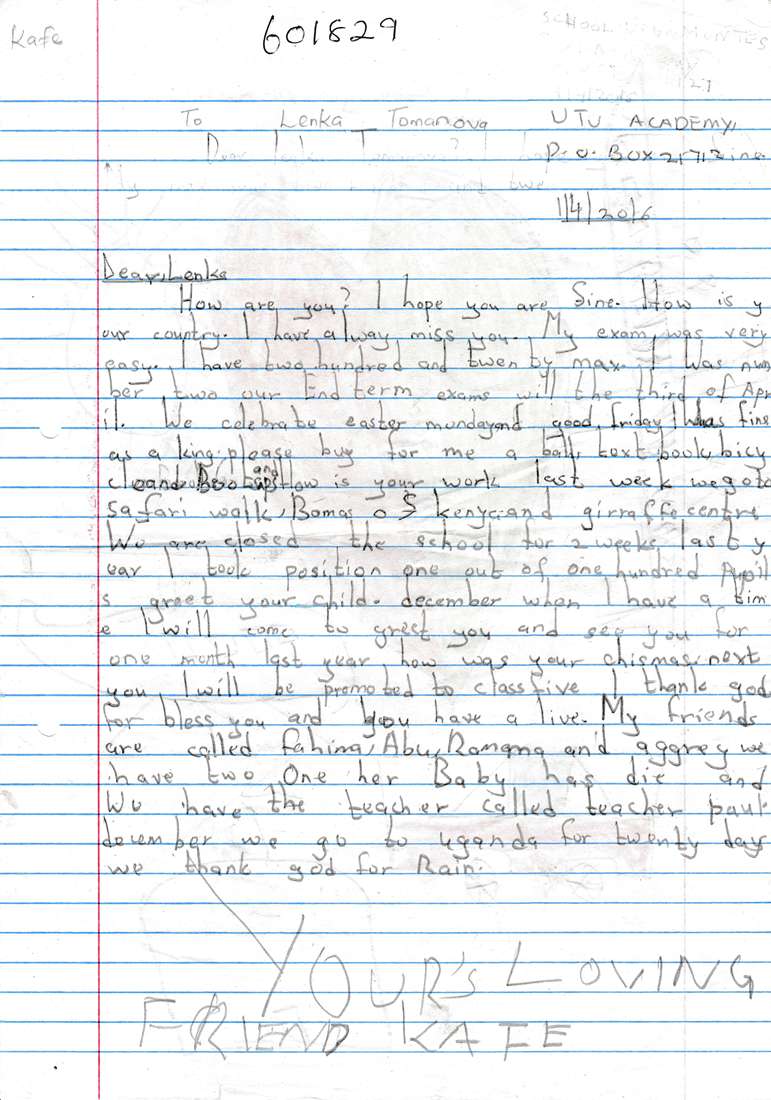 Kafe
601829
SCHOOL
To Lenka Tomanova UTU ACADEMY,
P.O. BOX
1/4/2016
Dear, Lenka
How are you? I hope you are Sine. How is y
our country. I have alway miss you. My exam, was very
easy. I have two hundred and twenty max. I was num
ber two our End term exams will the third of Apr
il. We celebrate easter munday and good friday I was fine
as a king. please buy for me a ball, text book bicy
cle and Boots and How is your work last week we go to
Safari walk, Bomas oS kenya and girraffe centre
We are closed the school for 2 weeks last y
ear I took position one out of one hundred Pupil
s greet your child. december when I have a tim
e I will come to greet you and see you for
one month last year, how was your chismas. next
you, I will be promoted to class five I thank god
for bless you and you have a live. My friends
are called fahima, Abu, Ramama and aggrey we
have two One her Baby has die and
We have the teacher called teacher paul.
december we go to uganda for twenty days
we thank god for Rain.
YOUR'S LOVING
FRIEND KAFE